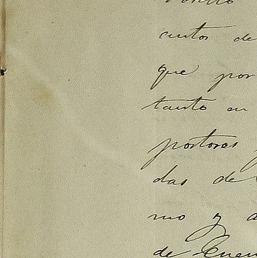 cuitos de
que por
tanto en
portoras
das de
mo y a
de Cuen